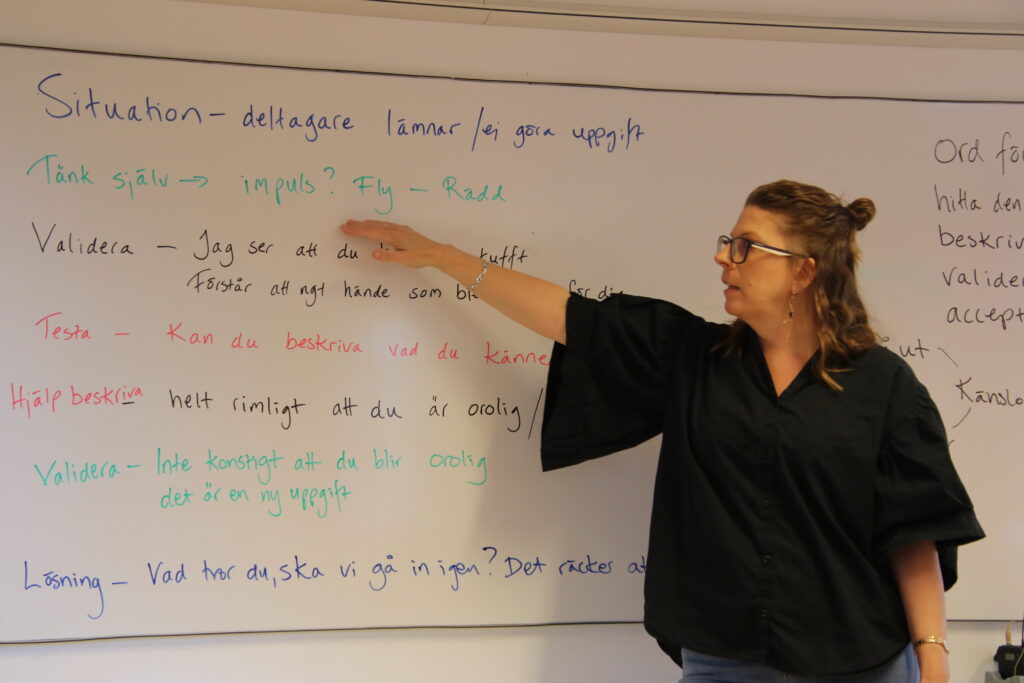 Situation – deltagare lämnar /ej göra uppgift
Tänk själv → impuls? Fly – Rädd
Validera – Jag ser att du tufft
Förstår att ngt hände som för
Testa – Kan du beskriva vad du
Hjälp beskriva helt rimligt att du är orolig/
Validera – Inte konstigt att du blir orolig
det är en ny uppgift
Lösning – Vad tror du, ska vi gå in igen? Det räcker
Ord
hitta den
ut